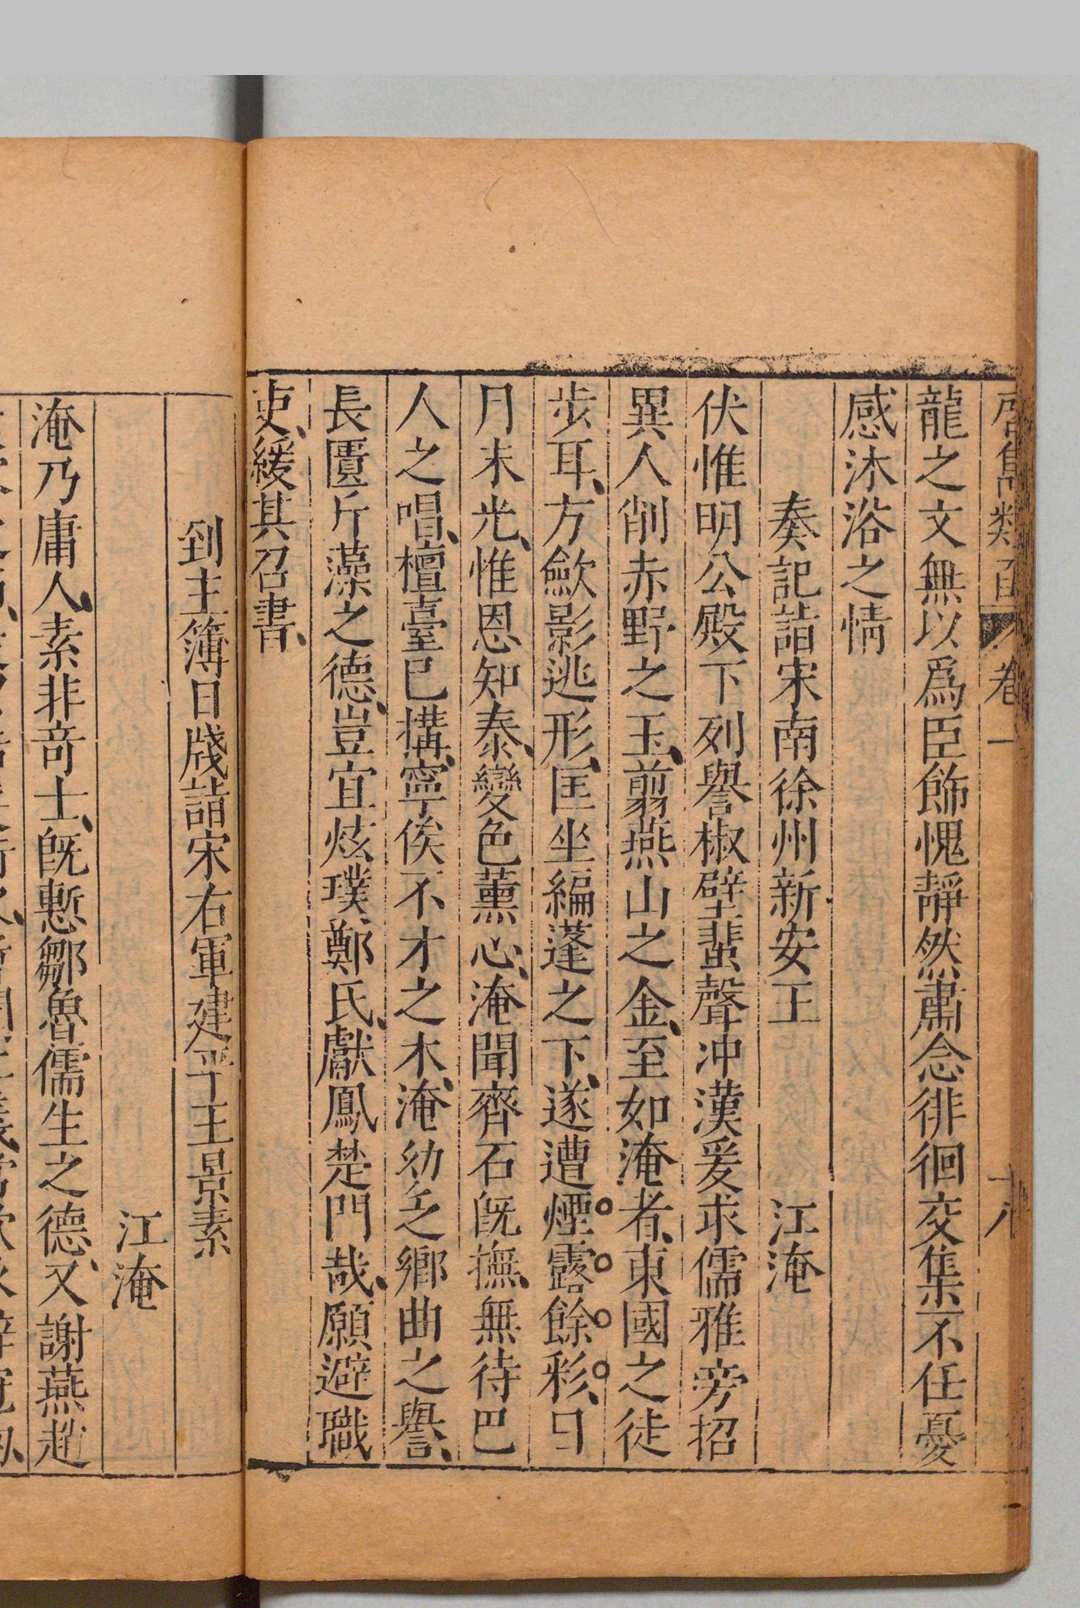 啓雋類函 卷一 十八
龍之文無以爲臣飾愧靜然肅念徘徊交集不任憂
感沐浴之情
奏記詣宋南徐州新安王 江淹
伏惟明公殿下列譽椒壁蜚聲冲漢爰求儒雅旁招
異人削赤野之玉、翦燕山之金、至如淹者、東國之徒
步耳、方歛影逃形、匡坐編蓬之下、遂遭煙露餘彩、日
月末光、惟恩知泰、變色薰心、淹聞齊石旣撫、無待巴
人之唱、檀臺已搆、寧俟不才之木、淹幼乏鄉曲之譽、
長匱斤藻之德、豈宜炫璞鄭氏、獻鳳楚門哉、願避職
吏、緩其召書、
到主簿日牋詣宋右軍建平王景素
江淹
淹乃庸人、素非奇士、旣慙鄒魯儒生之德、又謝燕趙